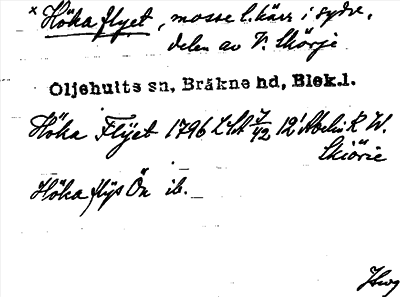 x Höka flyet, mosse l. kärr i sydv.
delen av V. Skörje
Oljehults sn, Bräkne hd, Blek.l.
Höka Flÿet 1796 LSA 12 R W.
Skiörie
Höka flÿs Ön ib.